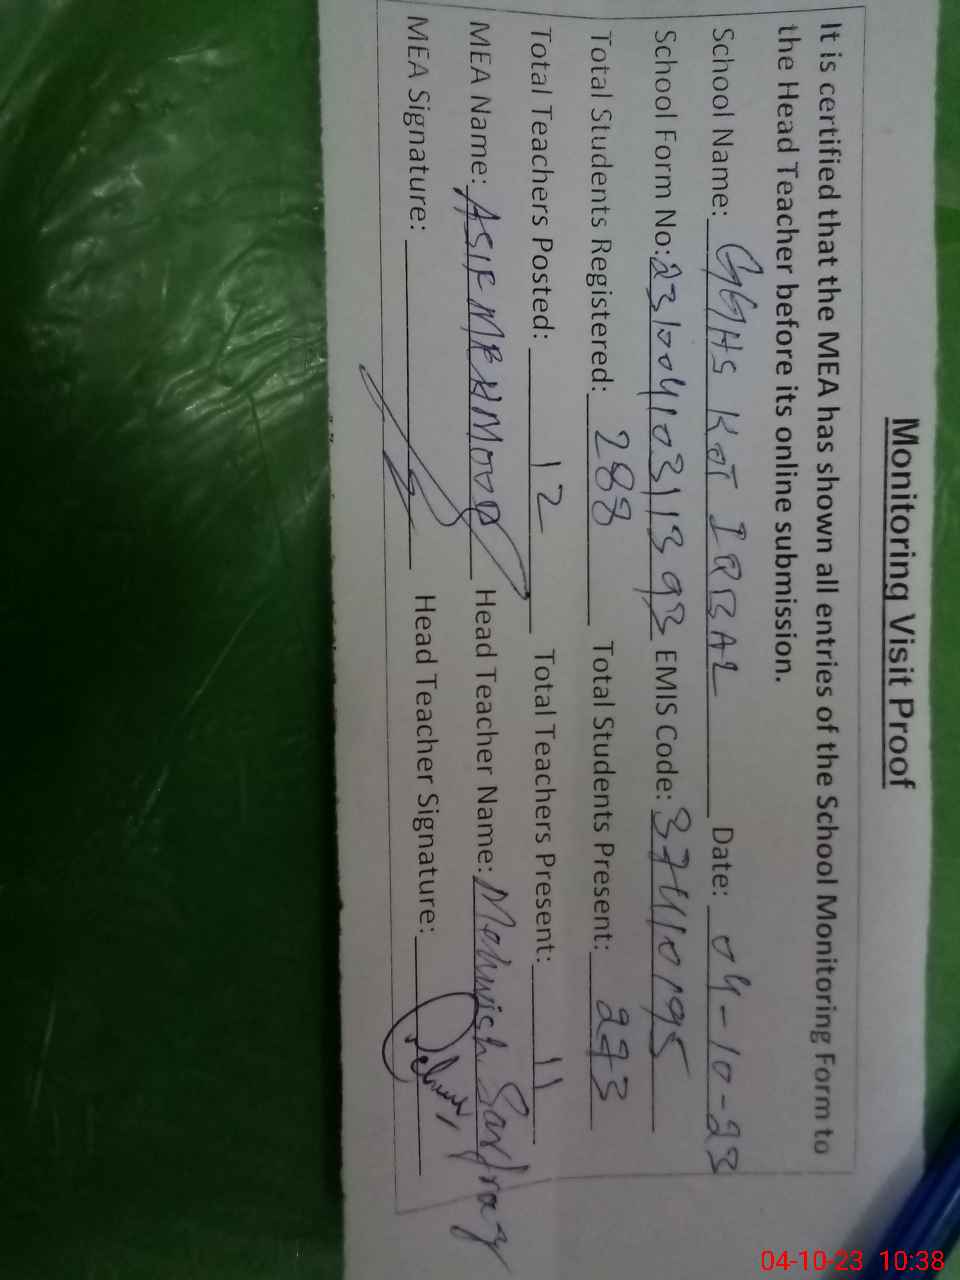 Monitoring Visit Proof
It is certified that the MEA has shown all entries of the School Monitoring Form to
the Head Teacher before its online submission.
School Name: GGHS KOT IQBAL Date: 04-10-23
School Form No: 23100410311393 EMIS Code: 37410195
Total Students Registered: 288 Total Students Present: 273
Total Teachers Posted: 12 Total Teachers Present: 11
MEA Name: ASIF MEHMOOD Head Teacher Name: Mehwish Sarfraz
MEA Signature: Head Teacher Signature:
04-10-23 10:38